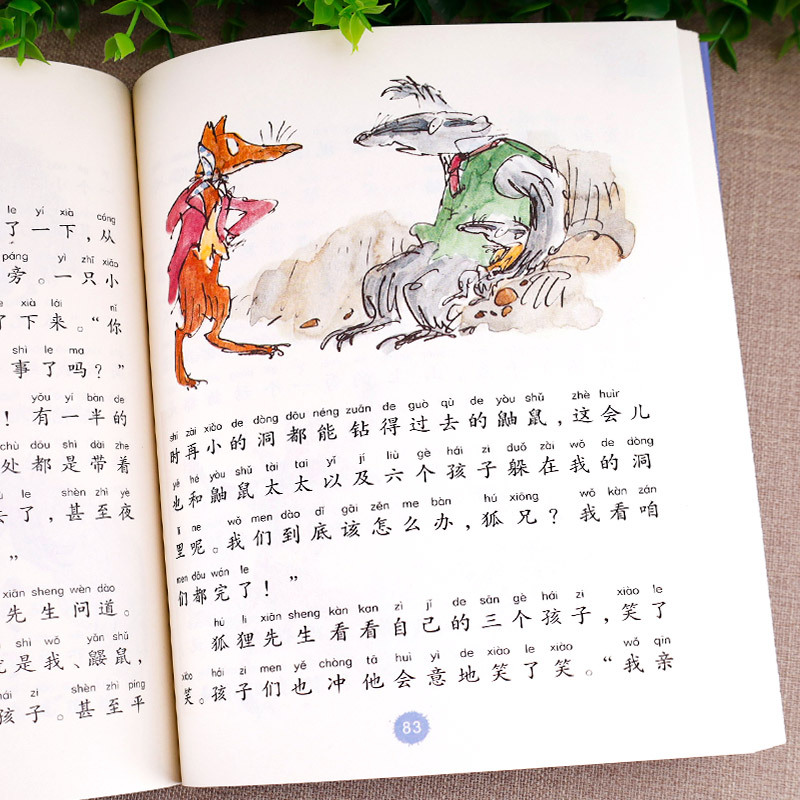 le yí xià cóng
了一下,从
páng yì zhī xiǎo
旁。一只小
xià lái nǐ
了下来。“你
shì le ma
事了吗?”
yǒu yí bàn de
!有一半的
chù dōu shì dài zhe
处都是带着
le shèn zhì yè
去了,甚至夜
”
xiān sheng wèn dào
先生问道。
shì wǒ yǎn shǔ
是我、鼹鼠,
hái zi shèn zhì píng
孩子。甚至平
shí zài xiǎo de dòng dōu néng zuān de guò qù de yòu shǔ zhè huìr
时再小的洞都能钻得过去的鼬鼠,这会儿
yě hé yòu shǔ tài tai yǐ jí liù gè hái zi duǒ zài wǒ de dòng
也和鼬鼠太太以及六个孩子躲在我的洞
lǐ ne wǒ men dào dǐ gāi zěn me bàn hú xiōng wǒ kàn zán
里呢。我们到底该怎么办,狐兄?我看咱
men dōu wán le
们都完了!”
hú li xiān sheng kàn kan zì jǐ de sān gè hái zi xiào le
狐狸先生看看自己的三个孩子,笑了
xiào hái zi men yě chòng tā huì yì de xiào le xiào wǒ qīn
笑。孩子们也冲他会意地笑了笑。“我亲
83